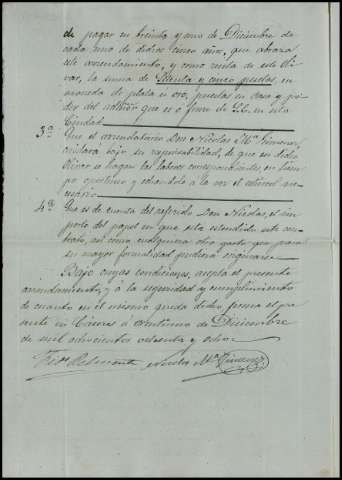 de pagar en treinta y uno de Diciembre de
cada uno de dichos cinco años, que abraza
este arrendamiento, y como renta de este Oli-
var, la suma de Setenta y cinco pesetas, en
moneda de plata u oro, puestas en casa y po-
der del que es o fuere de S.S. en esta
Ciudad.
3ª Que el arrendatario Don Nicolas Mª Jimenez,
cuidará bajo su responsabilidad, de que en dicho
Olivar se hagan las labores correspondientes, en tiem-
po oportuno y echandole a la vez el estiercol nece-
sario.
4ª Que es de cuenta del referido Don Nicolas, el im-
porte del papel en que está estendido este con-
trato, asi como cualquiera otro gasto que para
su mayor formalidad pudiera originarse.
Bajo cuyas condiciones, acepta el presente
arrendamiento, y á la seguridad y cumplimiento
de cuanto en el mismo queda dicho, firma el pre-
sente en Cáceres á veintiuno de Diciembre
de mil ochocientos ochenta y ocho.
Nicolas Mª Jimenez